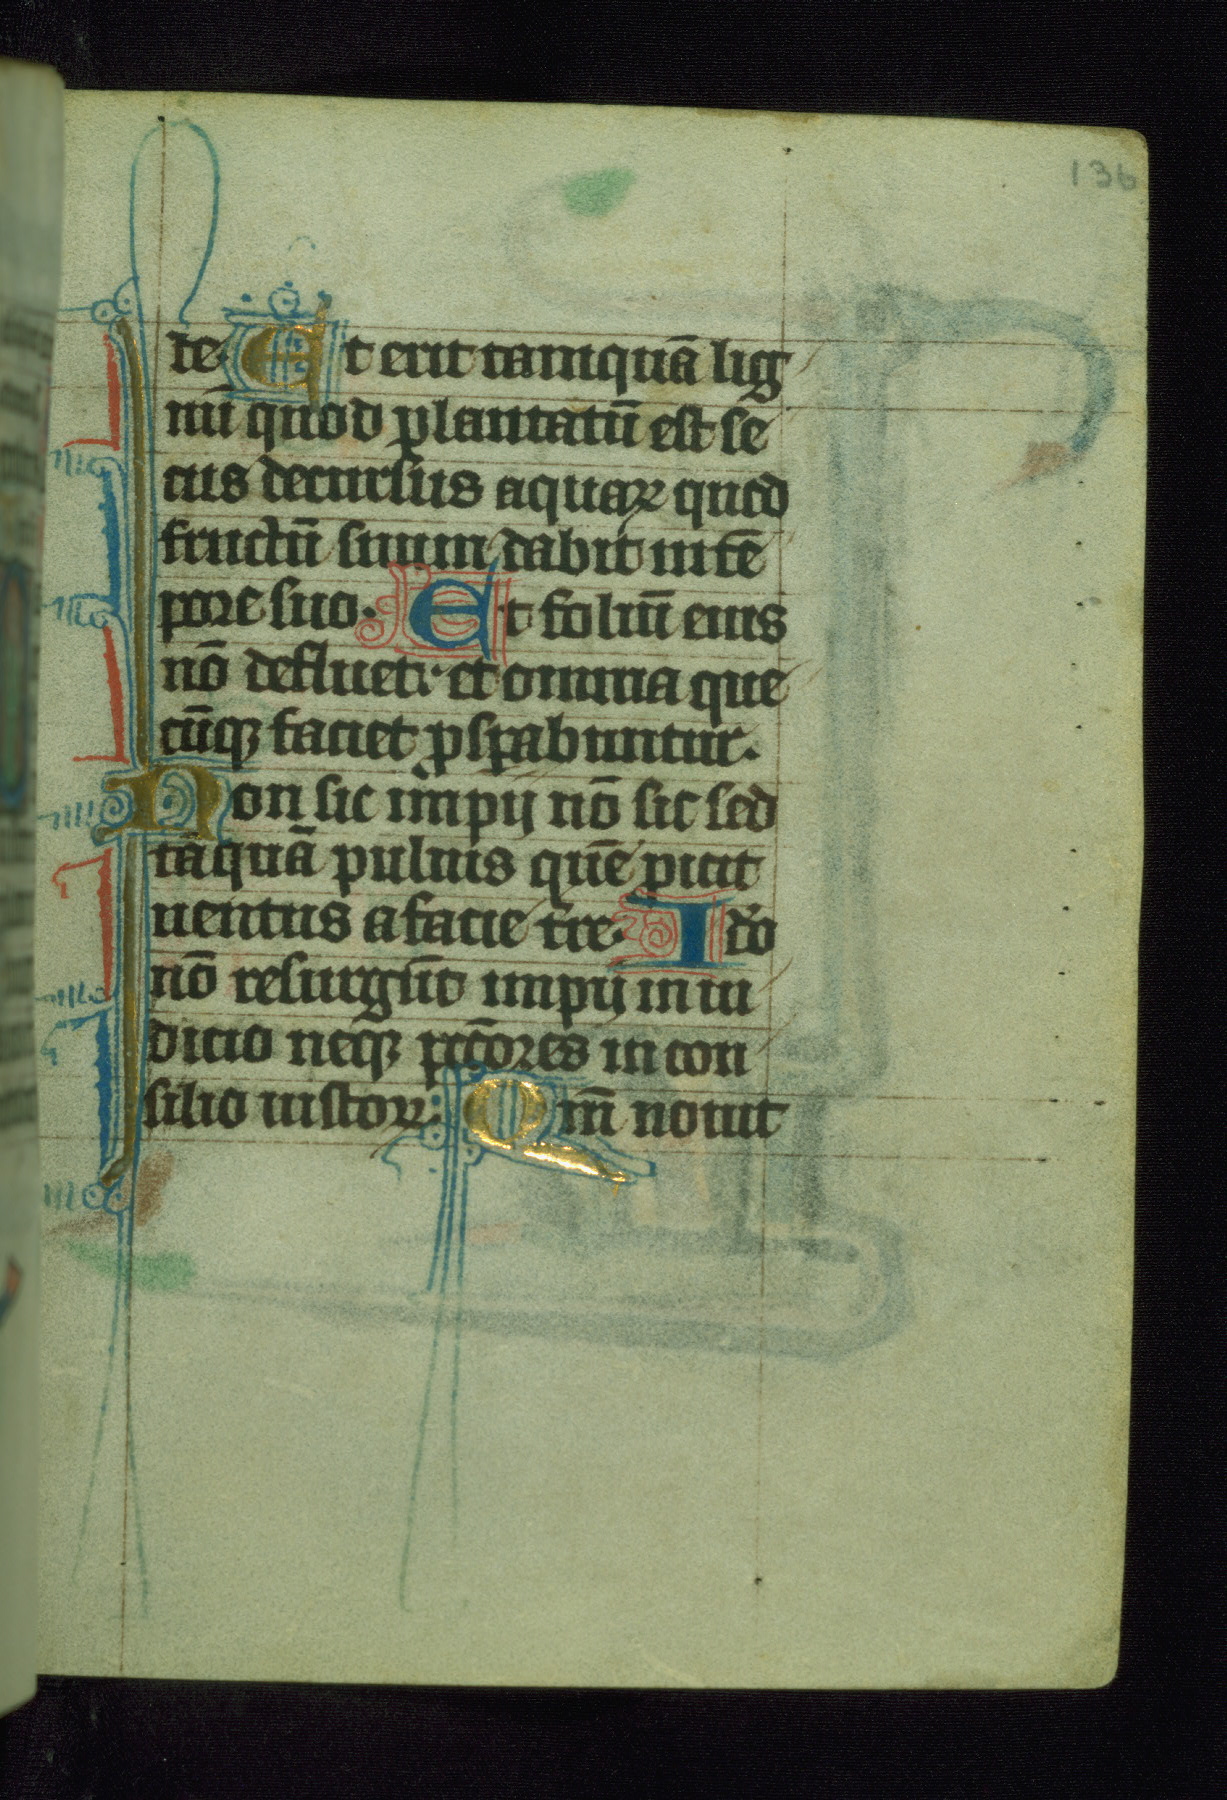 136
te. Et erit tamquã lig
nũ quod plantatũ est se
cus decursus aquaꝝ quod
fructũ suum dabit in tẽ
pore suo. Et foliũ eius
nõ defluet: et omnia que
cũqꝫ faciet ꝓsꝑabuntur.
Non sic impij nõ sic sed
tãquã puluis quẽ picit
uentus a facie tre. Ido
nõ resurgũt impij in iu
dicio neqꝫ pctõres in con
silio iustoꝝ. Qm̃ nouit